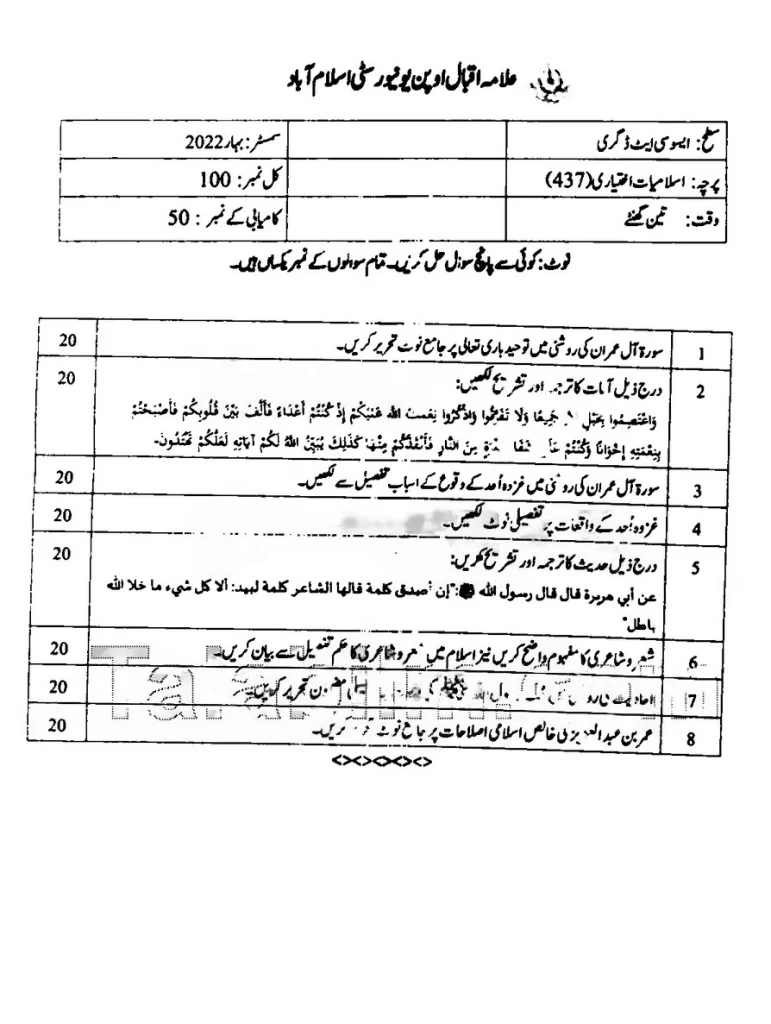 علامہ اقبال اوپن یونیورسٹی اسلام آباد
سطح: ایسوسی ایٹ ڈگری سمسٹر: بہار 2022
پرچہ: اسلامیات اختیاری (437) کل نمبر: 100
وقت: تین گھنٹے کامیابی کے نمبر: 50
نوٹ: کوئی سے پانچ سوال حل کریں۔ تمام سوالوں کے نمبر یکساں ہیں۔
1 سورۃ آل عمران کی روشنی میں توحید باری تعالی پر جامع نوٹ تحریر کریں۔ 20
2 درج ذیل آیات کا ترجمہ اور تشریح لکھیں: 20
وَاعْتَصِمُوا بِحَبْلِ جَمِيعًا وَلَا تَفَرَّقُوا وَاذْكُرُوا نِعْمَتَ اللہ عَلَيْكُمْ إِذْ كُنْتُمْ أَعْدَاءً فَأَلَّفَ بَيْنَ قُلُوبِكُمْ فَأَصْبَحْتُمْ
بِنِعْمَتِهِ إِخْوَانًا وَكُنْتُمْ مِنَ النَّارِ فَأَنْقَذَكُمْ مِنْهَا كَذَلِكَ يُبَيِّنُ اللَّهُ لَكُمْ آيَاتِهِ لَعَلَّكُمْ تَهْتَدُونَ۔
3 سورۃ آل عمران کی روشنی میں غزوہ اُحد کے وقوع کے اسباب تفصیل سے لکھیں۔ 20
4 غزوہ اُحد کے واقعات پر تفصیلی نوٹ لکھیں۔ 20
5 درج ذیل حدیث کا ترجمہ اور تشریح کریں: 20
عن أبي هريرة قال قال رسول الله ﷺ: "إن أصدق كلمة قالها الشاعر كلمة لبيد: ألا كل شيء ما خلا الله
باطل"
6 شعر و شاعری کا مفہوم واضح کریں نیز اسلام میں شعر و شاعری کا حکم تفصیل سے بیان کریں۔ 20
7 احادیث کی روشنی میں ﷺ مضمون تحریر کریں۔ 20
8 عمر بن عبدالعزیز کی خالص اسلامی اصلاحات پر جامع نوٹ تحریر کریں۔ 20
<><><><><>